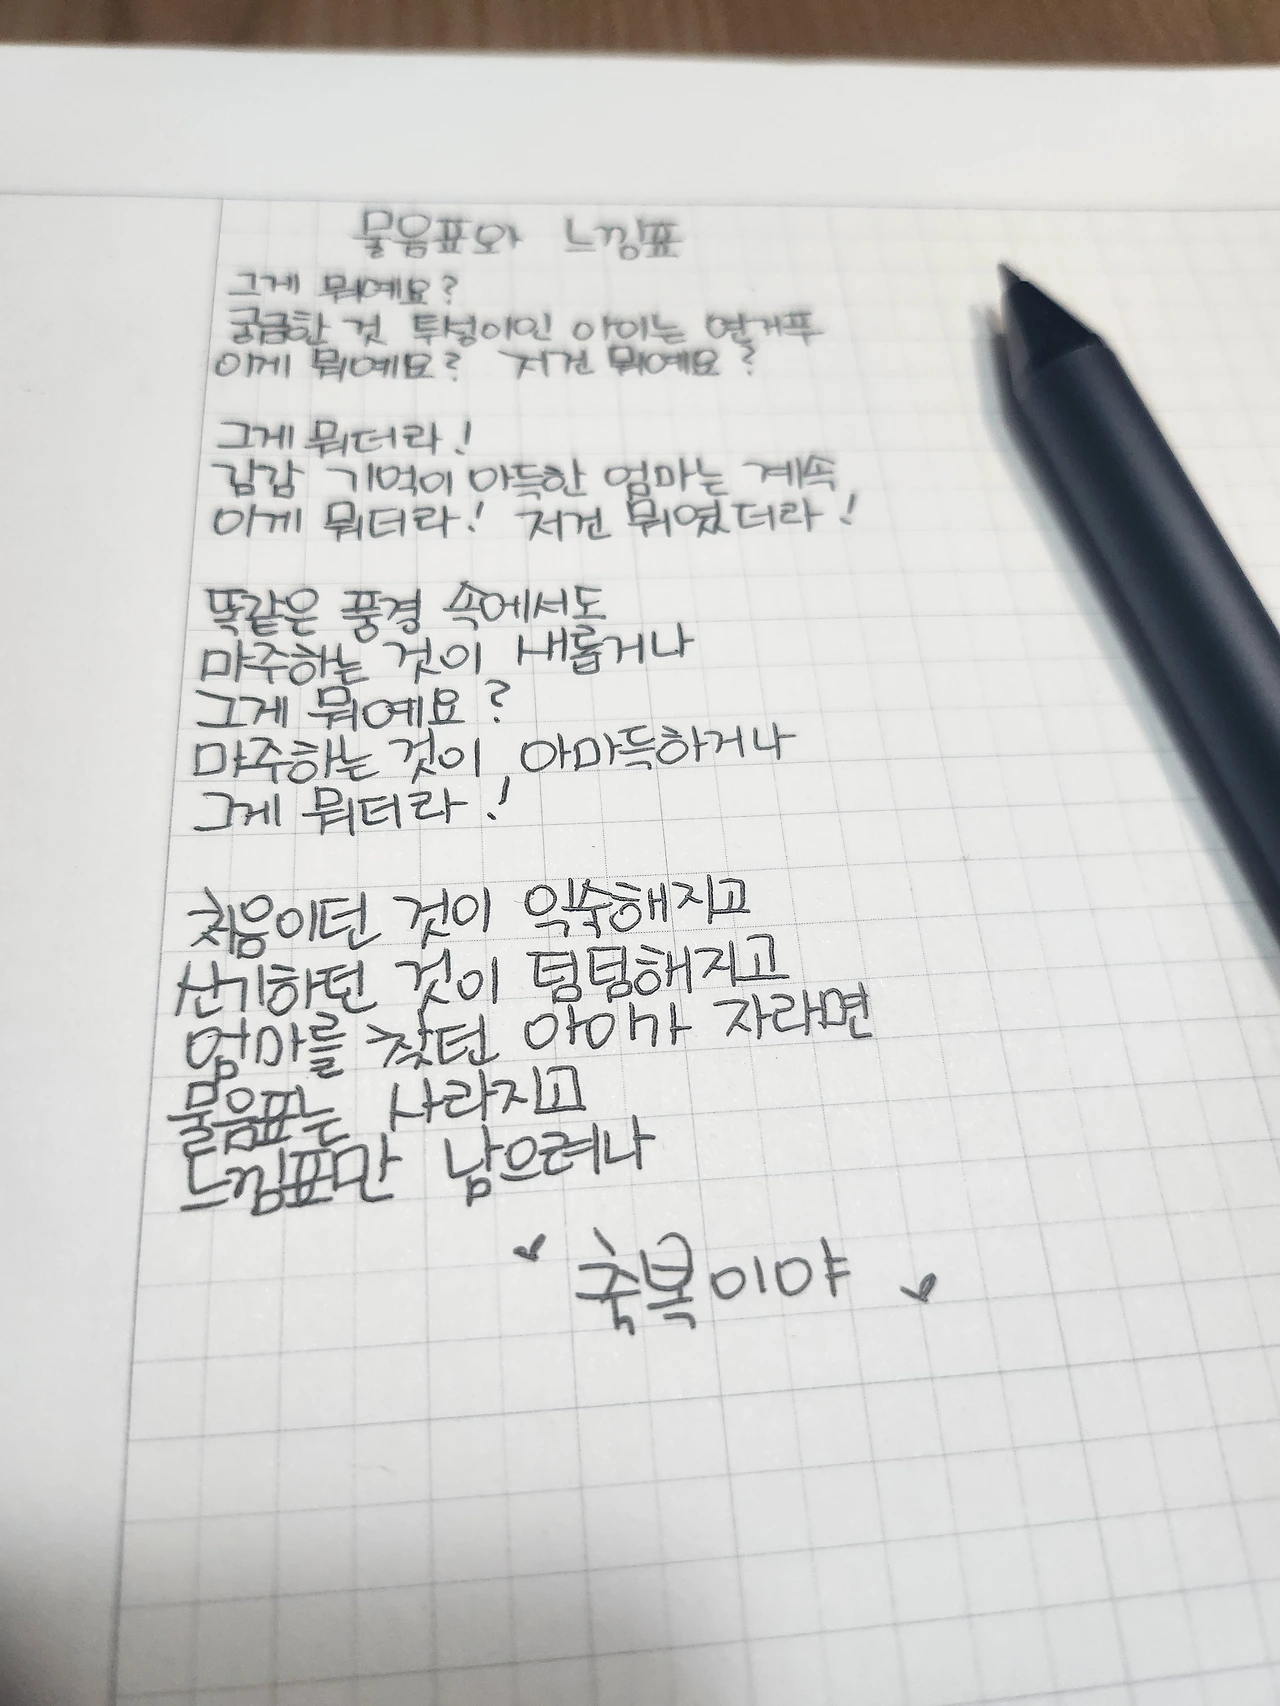 물음표와 느낌표
그게 뭐예요?
궁금한 것 투성이인 아이는 연거푸
이게 뭐예요? 저건 뭐예요?
그게 뭐더라!
감감 기억이 아득한 엄마는 계속
이게 뭐더라! 저건 뭐였더라!
똑같은 풍경 속에서도
마주하는 것이 새롭거나
그게 뭐예요?
마주하는 것이 아마득하거나
그게 뭐더라!
처음이던 것이 익숙해지고
신기하던 것이 덤덤해지고
엄마를 찾던 아이가 자라면
물음표는 사라지고
느낌표만 남으려나
축복이야